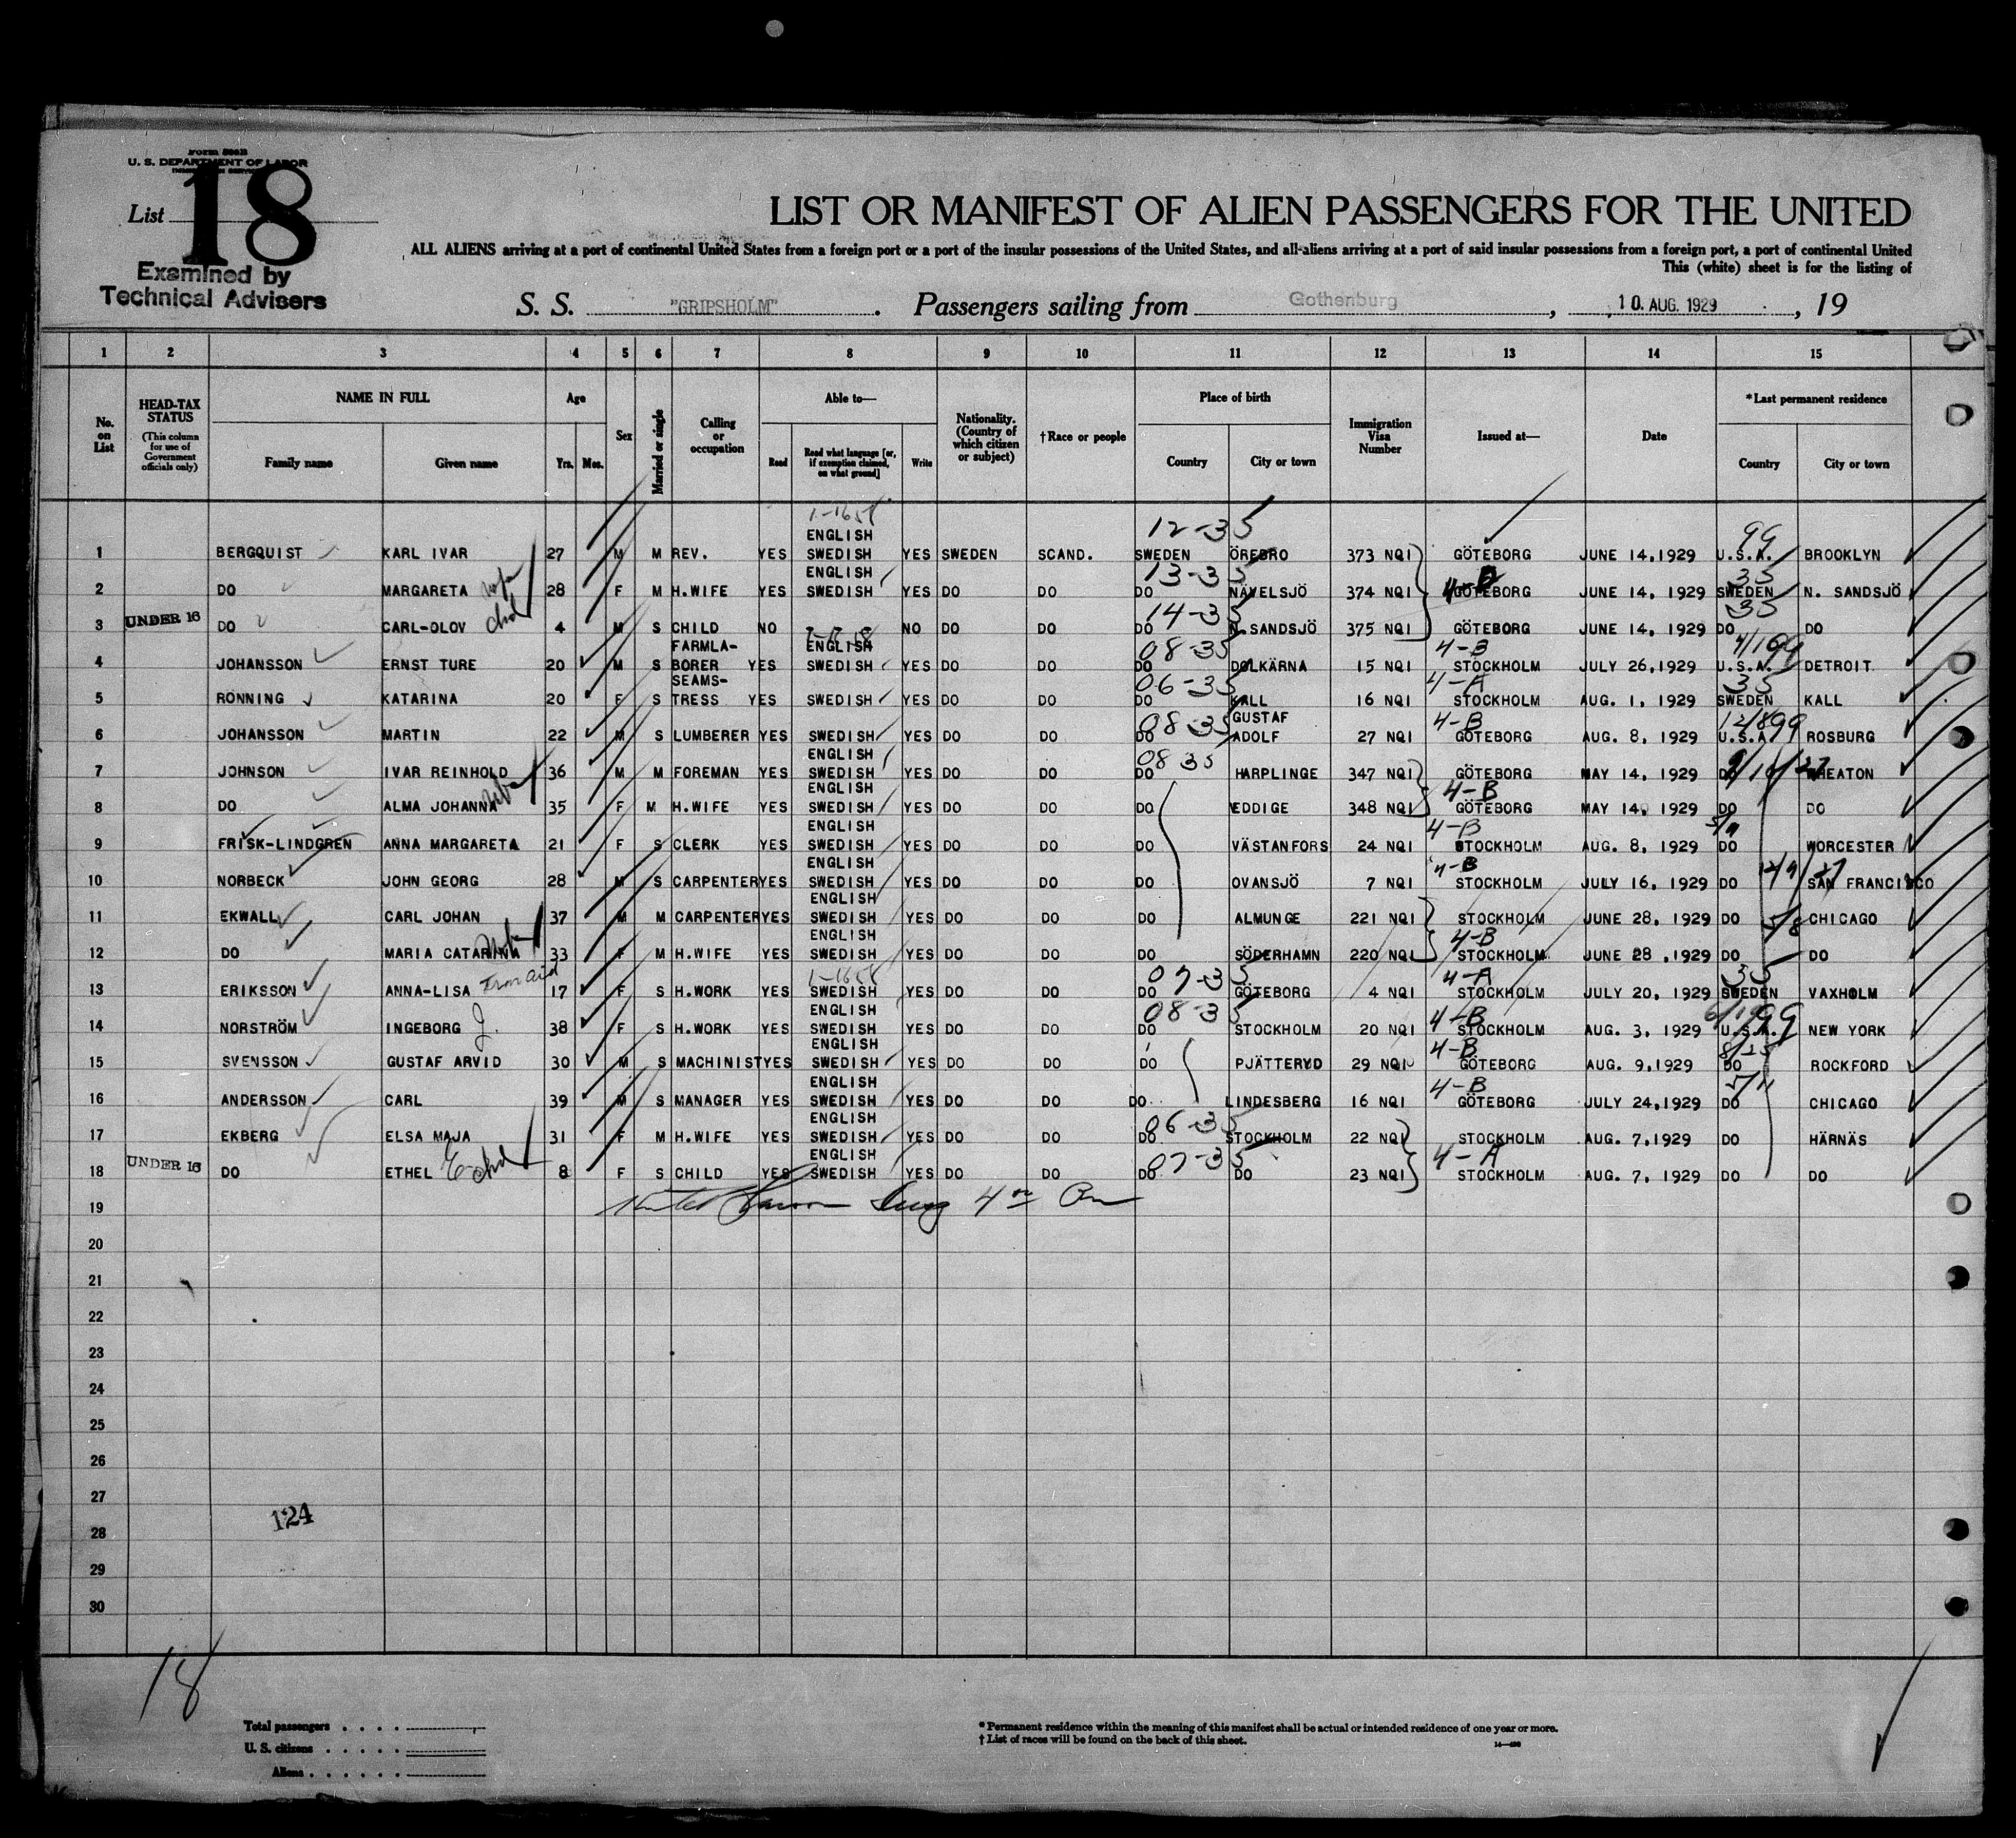 Form 500B
U. S. DEPARTMENT OF LABOR
List 18
Examined by
Technical Advisers
LIST OR MANIFEST OF ALIEN PASSENGERS FOR THE UNITED
ALL ALIENS arriving at a port of continental United States from a foreign port or a port of the insular possessions of the United States, and all aliens arriving at a port of said insular possessions from a foreign port, a port of continental United
This (white) sheet is for the listing of
S. S. "GRIPSHOLM". Passengers sailing from Gothenburg, 10. AUG. 1929, 19
1 2 3 4 5 6 7 8 9 10 11 12 13 14 15
No. on List
HEAD-TAX STATUS (This column for use of Government officials only)
NAME IN FULL Family name Given name
Age Yrs. Mos.
Sex
Married or single
Calling or occupation
Able to— Read Read what language [or, if exemption claimed, on what ground] Write
Nationality. (Country of which citizen or subject)
†Race or people
Place of birth Country City or town
Immigration Visa Number
Issued at—
Date
*Last permanent residence Country City or town
1-1658 12-35 99
1 BERGQUIST KARL IVAR 27 M M REV. YES ENGLISH SWEDISH YES SWEDEN SCAND. SWEDEN ÖREBRO 373 NQI GÖTEBORG JUNE 14,1929 U.S.A. BROOKLYN
13-35 35
2 DO MARGARETA wife 28 F M H.WIFE YES ENGLISH SWEDISH YES DO DO DO NÄVELSJÖ 374 NQI GÖTEBORG JUNE 14, 1929 SWEDEN N. SANDSJÖ
14-35 35
3 UNDER 16 DO CARL-OLOV child 4 M S CHILD NO NO DO DO DO N.SANDSJÖ 375 NQI GÖTEBORG JUNE 14, 1929 DO DO
08-35 4-B
4 JOHANSSON ERNST TURE 20 M S FARMLA-BORER YES ENGLISH SWEDISH YES DO DO DO DOLKÄRNA 15 NQI STOCKHOLM JULY 26,1929 U.S.A. DETROIT
06-35 4-A 35
5 RÖNNING KATARINA 20 F S SEAMS-TRESS YES SWEDISH YES DO DO DO KALL 16 NQI STOCKHOLM AUG. 1, 1929 SWEDEN KALL
08-35 4-B
6 JOHANSSON MARTIN 22 M S LUMBERER YES SWEDISH YES DO DO DO GUSTAF ADOLF 27 NQI GÖTEBORG AUG. 8, 1929 U.S.A. ROSBURG
08 35
7 JOHNSON IVAR REINHOLD 36 M M FOREMAN YES ENGLISH SWEDISH YES DO DO DO HARPLINGE 347 NQI GÖTEBORG MAY 14, 1929 DO WHEATON
4-B
8 DO ALMA JOHANNA wife 35 F M H.WIFE YES ENGLISH SWEDISH YES DO DO DO VEDDIGE 348 NQI GÖTEBORG MAY 14, 1929 DO DO
4-B
9 FRISK-LINDGREN ANNA MARGARETA 21 F S CLERK YES ENGLISH SWEDISH YES DO DO DO VÄSTANFORS 24 NQI STOCKHOLM AUG. 8, 1929 DO WORCESTER
4-B
10 NORBECK JOHN GEORG 28 M S CARPENTER YES ENGLISH SWEDISH YES DO DO DO OVANSJÖ 7 NQI STOCKHOLM JULY 16, 1929 DO SAN FRANCISCO
11 EKWALL CARL JOHAN 37 M M CARPENTER YES ENGLISH SWEDISH YES DO DO DO ALMUNGE 221 NQI STOCKHOLM JUNE 28, 1929 DO 5/8 CHICAGO
4-B
12 DO MARIA CATARINA wife 33 F M H.WIFE YES ENGLISH SWEDISH YES DO DO DO SÖDERHAMN 220 NQI STOCKHOLM JUNE 28 ,1929 DO DO
1-1658 07-35 4-A 35
13 ERIKSSON ANNA-LISA 17 F S H.WORK YES SWEDISH YES DO DO DO GÖTEBORG 4 NQI STOCKHOLM JULY 20, 1929 SWEDEN VAXHOLM
08-35 4-B
14 NORSTRÖM INGEBORG J. 38 F S H.WORK YES ENGLISH SWEDISH YES DO DO DO STOCKHOLM 20 NQI STOCKHOLM AUG. 3, 1929 U.S.A. NEW YORK
4-B
15 SVENSSON GUSTAF ARVID 30 M S MACHINIST YES ENGLISH SWEDISH YES DO DO DO PJÄTTERYD 29 NQI GÖTEBORG AUG. 9,1929 DO ROCKFORD
4-B
16 ANDERSSON CARL 39 M S MANAGER YES ENGLISH SWEDISH YES DO DO DO LINDESBERG 16 NQI GÖTEBORG JULY 24,1929 DO CHICAGO
06-35
17 EKBERG ELSA MAJA 31 F M H.WIFE YES ENGLISH SWEDISH YES DO DO DO STOCKHOLM 22 NQI STOCKHOLM AUG. 7,1929 DO HÄRNÄS
07-35 4-A
18 UNDER 16 DO ETHEL E child 8 F S CHILD YES ENGLISH SWEDISH YES DO DO DO DO 23 NQI STOCKHOLM AUG. 7, 1929 DO DO
19
20
21
22
23
24
25
26
27
28
29
30
124
18
Total passengers
U. S. citizens
Aliens
* Permanent residence within the meaning of this manifest shall be actual or intended residence of one year or more.
† List of races will be found on the back of this sheet.